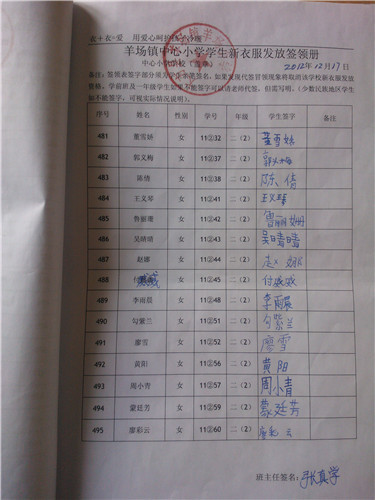 衣+衣=爱 用爱心呵护孩子冷暖
羊场镇中心小学学生新衣服发放签领册
中心小学学校（盖章） 2012年12月17日
备注：签领表签字部分须为学生亲笔签名，如果发现代签冒领现象将取消该学校新衣服发放
资格。学前班及一年级学生如果不能签字可以请老师代签，但需写明。（少数民族地区学生
如不能签字，可视实际情况说明）。
序号 姓名 性别 学号 年级 学生签字 备注
481 董雪娇 女 11②32 二（2） 董雪娇
482 郭义梅 女 11②37 二（2） 郭义梅
483 陈倩 女 11②38 二（2） 陈倩
484 王文琴 女 11②41 二（2） 王文琴
485 鲁丽珊 女 11②42 二（2） 鲁丽珊
486 吴晴晴 女 11②43 二（2） 吴晴晴
487 赵娜 女 11②44 二（2） 赵娜
488 付威威 女 11②45 二（2） 付威威
489 李雨晨 女 11②48 二（2） 李雨晨
490 勾紫兰 女 11②51 二（2） 勾紫兰
491 廖雪 女 11②52 二（2） 廖雪
492 黄阳 女 11②56 二（2） 黄阳
493 周小青 女 11②57 二（2） 周小青
494 蒙廷芳 女 11②59 二（2） 蒙廷芳
495 廖彩云 女 11②60 二（2） 廖彩云
班主任签名：张真学